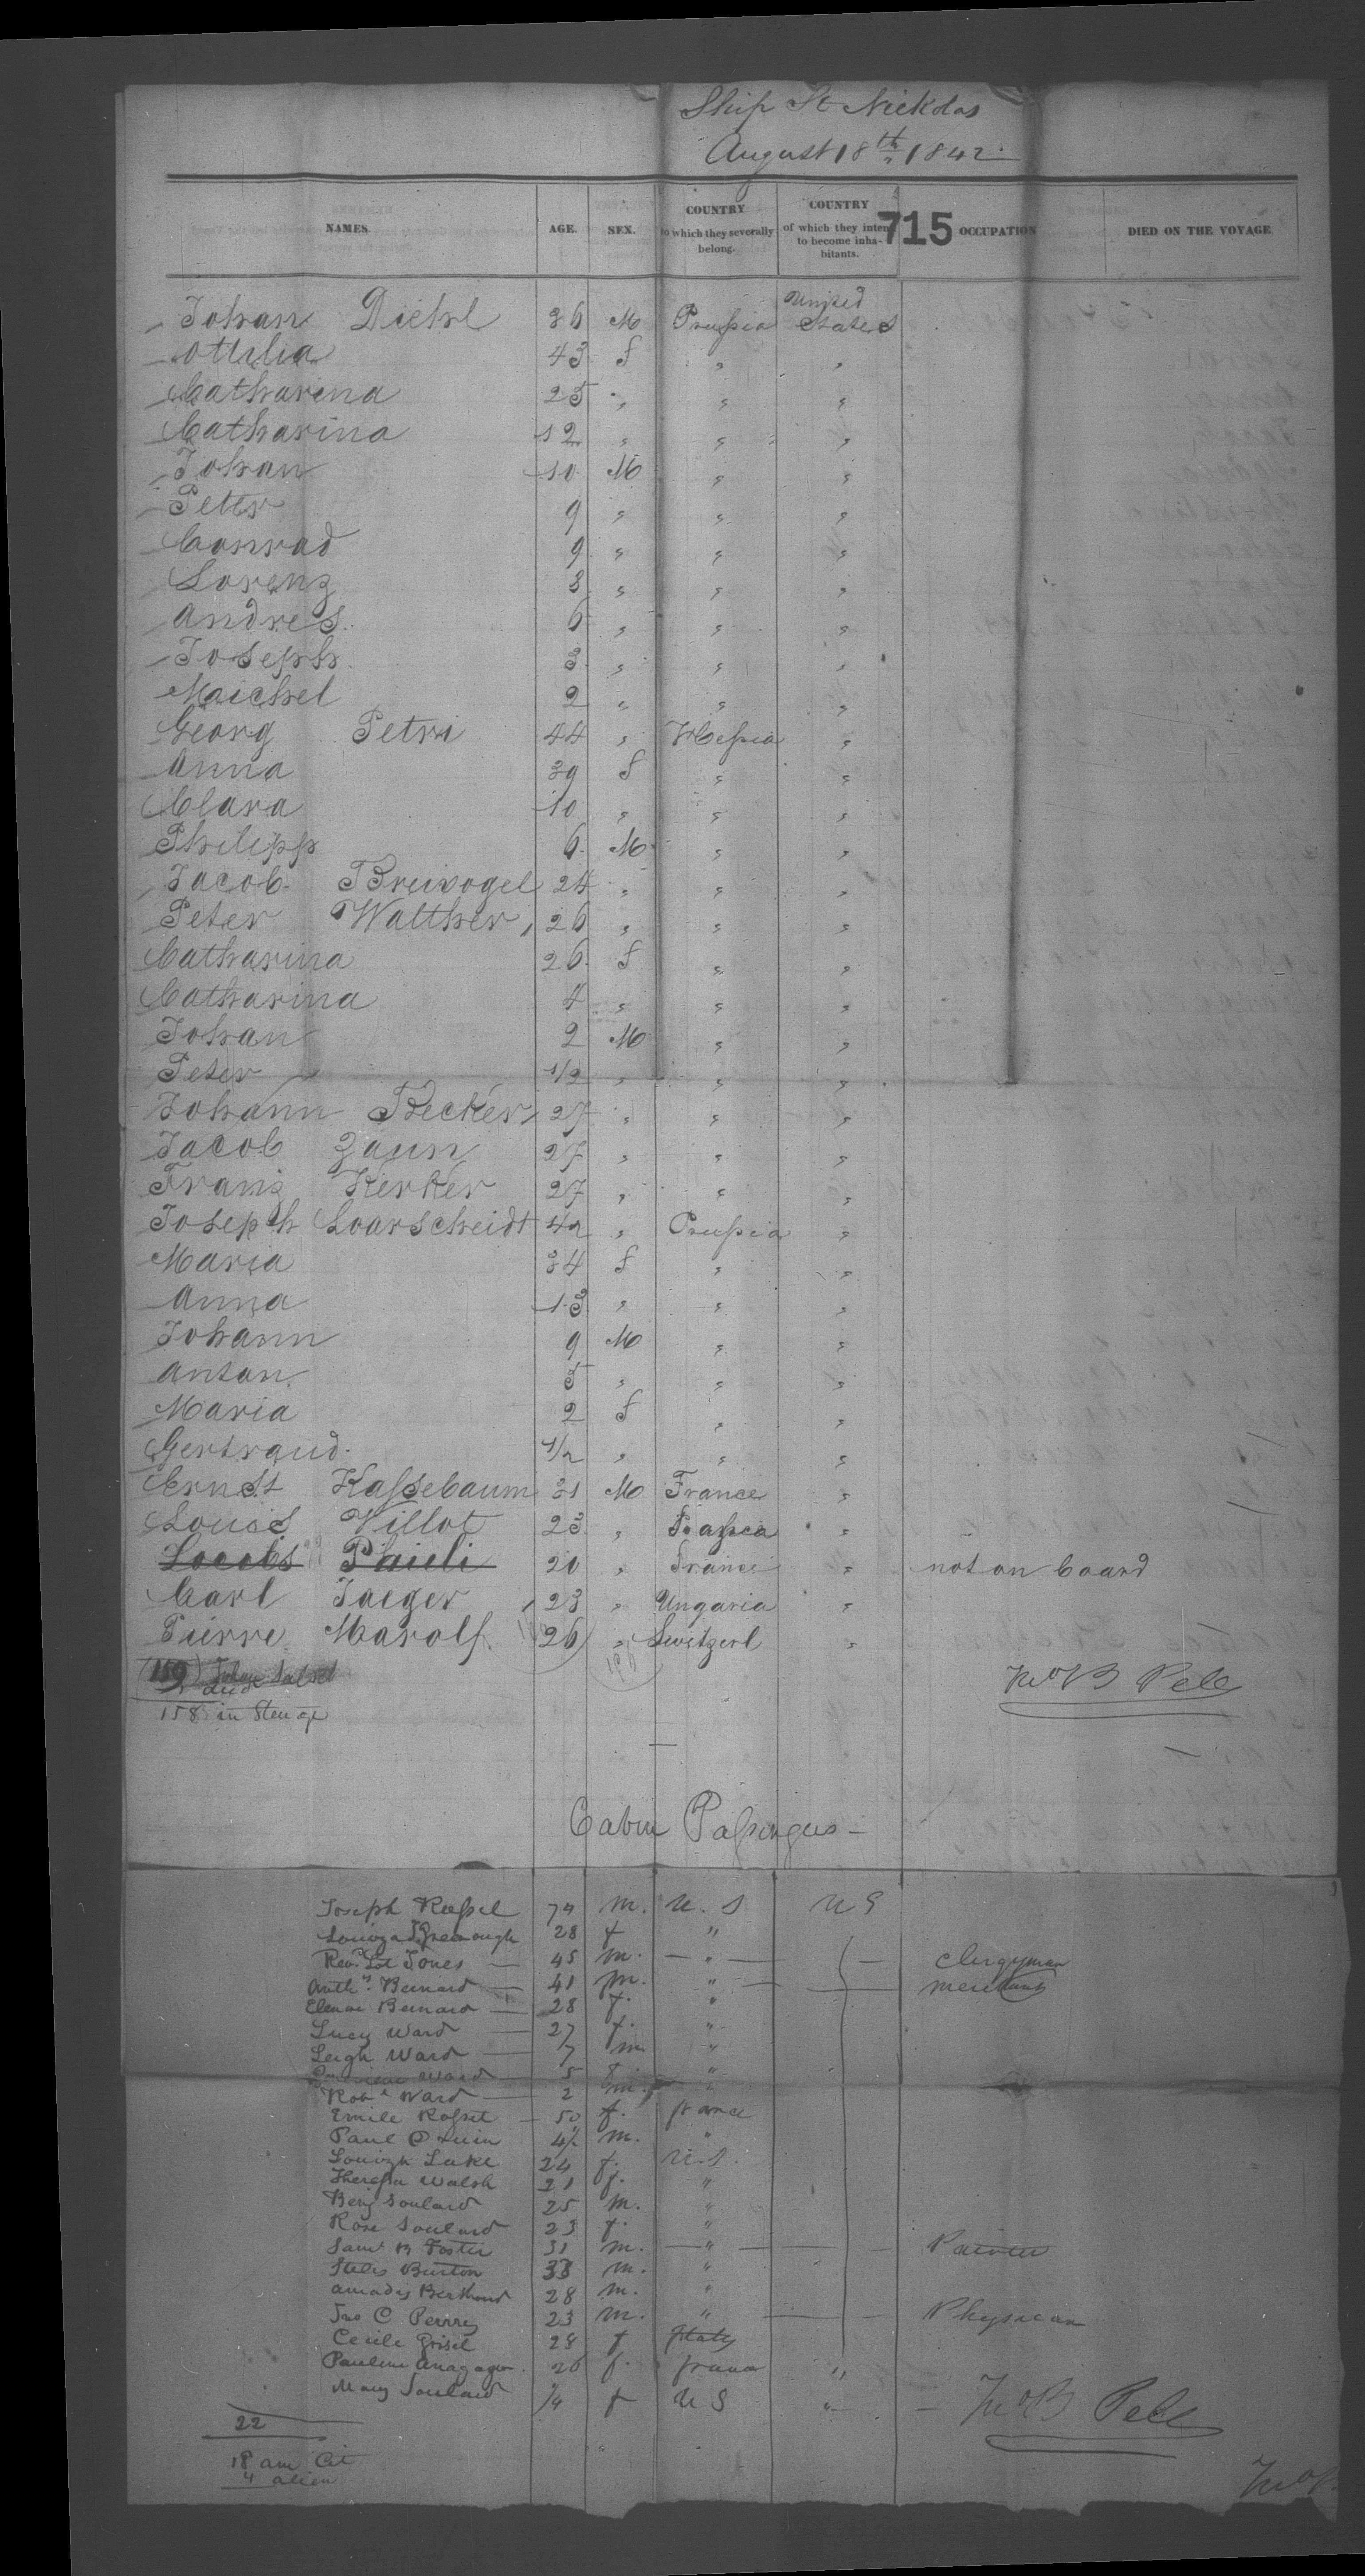 Ship St Nickolas
August 18th 1842
NAMES. AGE. SEX. COUNTRY to which they severally belong. COUNTRY of which they inten to become inha- bitants. 715 OCCUPATION DIED ON THE VOYAGE.
Johan Diehl 36 M Prussia United States
Ottilia 43 f " "
Catharina 25 " " "
Catharina 12 " " "
Johan 10 M " "
Peter 9 " " "
Conrad 9 " " "
Lorenz 8 " " "
Andres 6 " " "
Joseph 3 " " "
Maichel 2 " " "
Georg Petri 44 " Hessia "
Anna 39 f " "
Clara 10 " " "
Philipp 6 M " "
Jacob Breivogel 24 " " "
Peter Walther 26 " " "
Catharina 26 f " "
Catharina 4 " " "
Johan 2 M " "
Peter 1/2 " " "
Johann Becker 27 " " "
Jacob Zaun 27 " " "
Franz Kerker 27 " " "
Joseph Loarscheidt 42 " Prussia "
Maria 34 f " "
Anna 13 " " "
Johann 9 M " "
Anton 5 " " "
Maria 2 f " "
Gertraud 1/2 " " "
Ernest Kassebaum 31 M France "
Louis Villot 23 " "
20 " France " not on board
Carl Jaeger 23 " Ungaria "
Pierre Marolf 26 " Switzerl "
(159)
158 in Steuage
Jno B Pell
Cabin Passengers
Joseph Russel 74 m. U.S U S
Louiza Greenough 28 f "
Revd Lot Jones 45 m. " clergyman
Anthy Bernard 41 m. " merchant
Elenor Bernard 28 f. "
Lucy Ward 27 f. "
Leigh Ward 7 m "
Ward 5 f. "
Robt Ward 2 m. "
Emile Rosset 50 f. france
Paul 4/2 m. "
Louiza Lake 24 f. U.S.
Theresa Walsh 21 f. "
Benj Soulard 25 m. "
Rose Soulard 23 f. "
Saml B Foster 31 m. " Painter
Stiles Burton 33 m. "
Amadis Berthoud 28 m. "
Jno C Perrry 23 m. " Physician
Cecile Grisel 28 f
Pauline 26 f. france "
Mary Soulard 1/4 f U S "
Jno B Pell
22
18 am Cit
4 alien
Jno